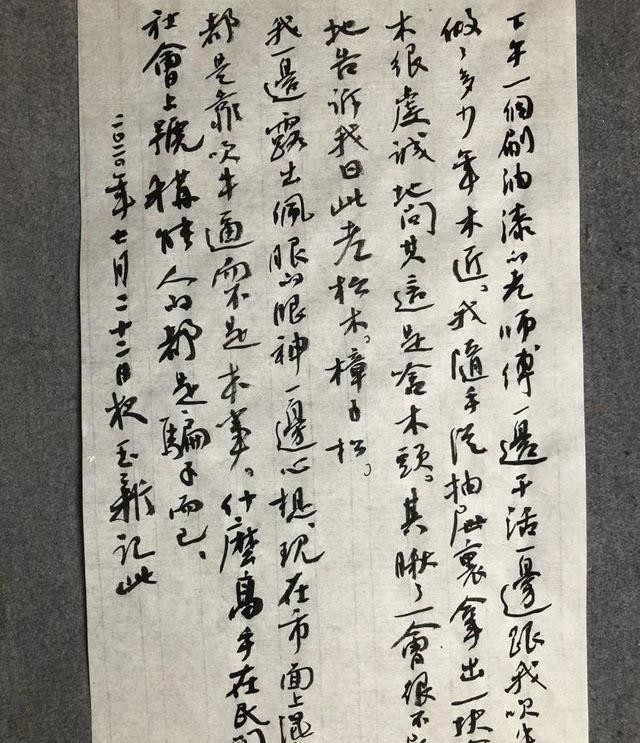 下午一個刷油漆的老师傅一邊干活一邊跟我吹
做了多少年木匠、我隨手從抽屉裏拿出一块
木很虔诚地问其這是啥木頭。其瞅了一會很不
地告诉我曰此老松木。樟子松。
我一邊露出佩服的眼神一邊心想、现在市面上混
都是靠吹牛逼而不是本事。什麽高手在民
社會上號稱能人的都是騙子而已。
二〇二〇年七月二十二日夜玉新记此